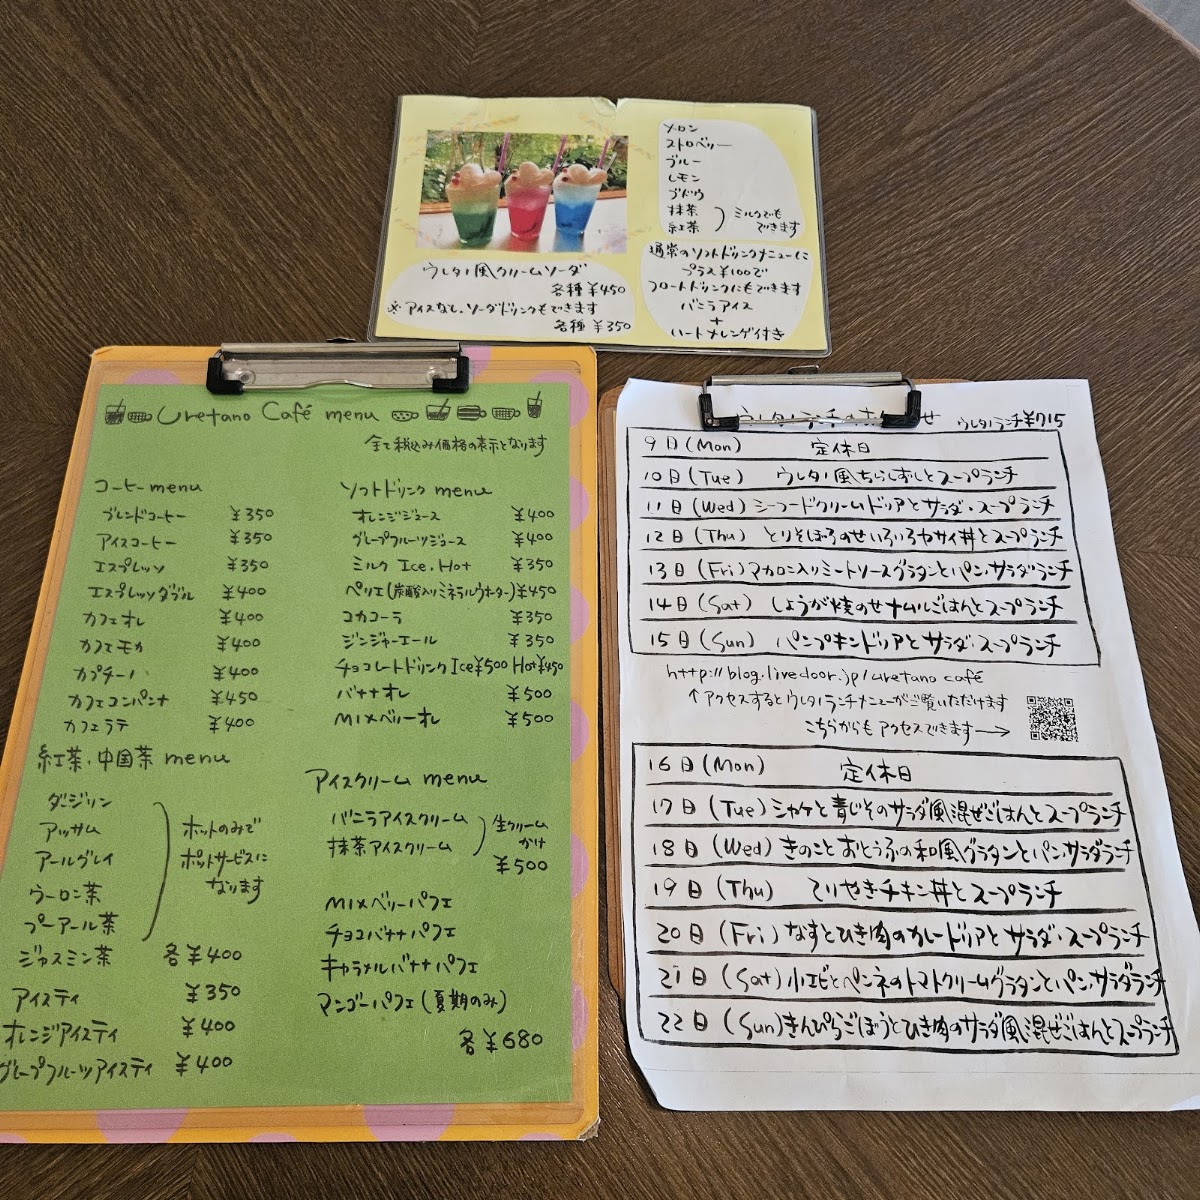 メロン
ストロベリー
ブルー
レモン
ブドウ
抹茶
紅茶
ミルクでも
できます
ウレタノ風クリームソーダ
各種¥450
※アイスなし、ソーダドリンクもできます
各種¥350
通常のソフトドリンクメニューに
プラス¥100で
フロートドリンクにもできます
バニラアイス
+
ハートメレンゲ付き
Uretano Café menu
全て税込み価格の表示となります
コーヒーmenu
ブレンドコーヒー ¥350
アイスコーヒー ¥350
エスプレッソ ¥350
エスプレッソダブル ¥400
カフェオレ ¥400
カフェモカ ¥400
カプチーノ ¥400
カフェコンパンナ ¥450
カフェラテ ¥400
紅茶・中国茶 menu
ダージリン
アッサム
アールグレイ
ウーロン茶
プーアール茶
ジャスミン茶 各¥400
ホットのみで
ポットサービスに
なります
アイスティ ¥350
オレンジアイスティ ¥400
グレープフルーツアイスティ ¥400
ソフトドリンク menu
オレンジジュース ¥400
グレープフルーツジュース ¥400
ミルク Ice, Hot ¥350
ペリエ(炭酸入りミネラルウォーター) ¥450
コカコーラ ¥350
ジンジャーエール ¥350
チョコレートドリンク Ice¥500 Hot¥450
バナナオレ ¥500
MIXベリーオレ ¥500
アイスクリーム menu
バニラアイスクリーム
抹茶アイスクリーム
生クリーム
かけ
¥500
MIXベリーパフェ
チョコバナナパフェ
キャラメルバナナパフェ
マンゴーパフェ(夏期のみ)
各¥680
ウレタノランチ¥715
9日(Mon) 定休日
10日(Tue) ウレタノ風ちらしずしとスープランチ
11日(Wed) シーフードクリームドリアとサラダ・スープランチ
12日(Thu) とりそぼろのせいろいろヤサイ丼とスープランチ
13日(Fri) マカロニ入りミートソースグラタンとパン、サラダランチ
14日(Sat) しょうが焼のせナムルごはんとスープランチ
15日(Sun) パンプキンドリアとサラダ・スープランチ
http://blog.livedoor.jp/uretano café
↑アクセスするとウレタノランチメニューがご覧いただけます
こちらからもアクセスできます→
16日(Mon) 定休日
17日(Tue) シャケと青じそのサラダ風混ぜごはんとスープランチ
18日(Wed) きのことおとうふの和風グラタンとパン、サラダランチ
19日(Thu) てりやきチキン丼とスープランチ
20日(Fri) なすとひき肉のカレードリアとサラダ・スープランチ
21日(Sat) 小エビとペンネのトマトクリームグラタンとパン、サラダランチ
22日(Sun) きんぴらごぼうとひき肉のサラダ風混ぜごはんとスープランチ